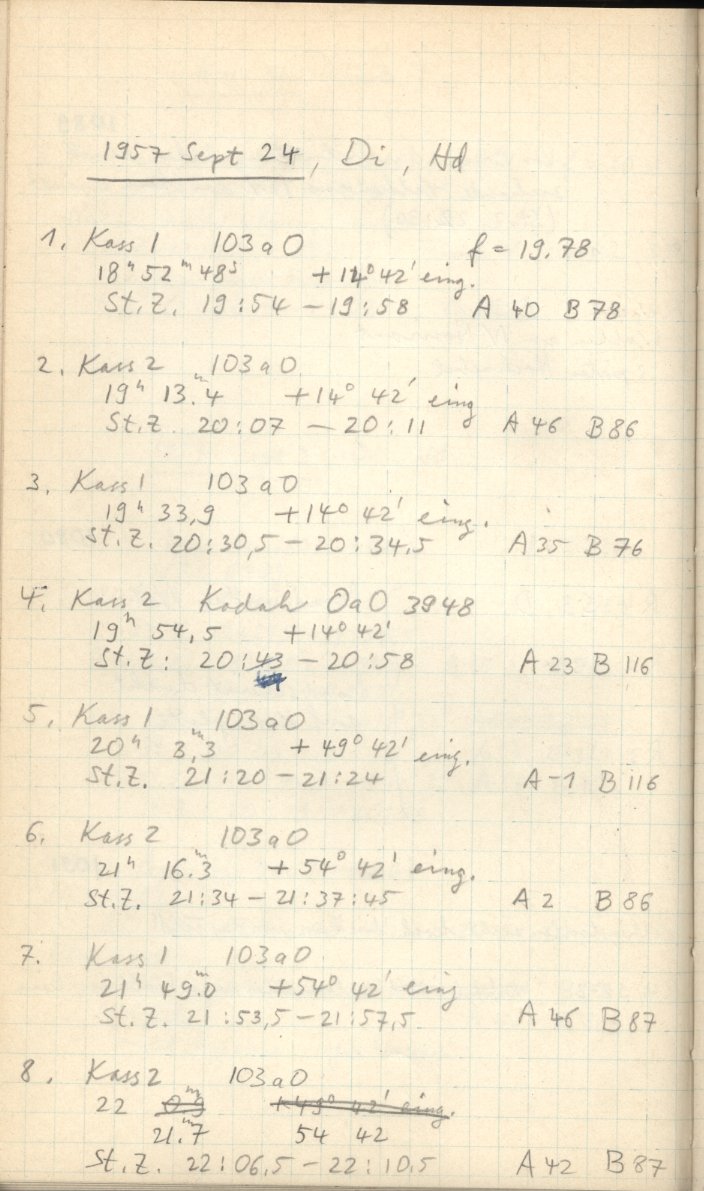 1957 Sept 24, Di, Hd
1. Kass 1 103aO f = 19.78
18h 52m 48s +14° 42' eing.
St.Z. 19:54 – 19:58 A 40 B 78
2. Kass 2 103aO
19h 13m.4 +14° 42' eing
St.Z. 20:07 – 20:11 A 46 B 86
3. Kass 1 103aO
19h 33,9 +14° 42' eing.
St.Z. 20:30,5 – 20:34,5 A 35 B 76
4. Kass 2 Kodak OaO 3948
19h 54,5 +14° 42'
St.Z: 20:43 – 20:58 A 23 B 116
5. Kass 1 103aO
20h 3m,3 +49° 42' eing.
St.Z. 21:20 – 21:24 A -1 B 116
6. Kass 2 103aO
21h 16m.3 +54° 42' eing.
St.Z. 21:34 – 21:37:45 A 2 B 86
7. Kass 1 103aO
21h 49m.0 +54° 42' eing
St.Z. 21:53,5 – 21:57,5 A 46 B 87
8. Kass 2 103aO
22 0m.9 +49° 42' eing.
21m.7 54 42
St.Z. 22:06,5 – 22:10,5 A 42 B 87